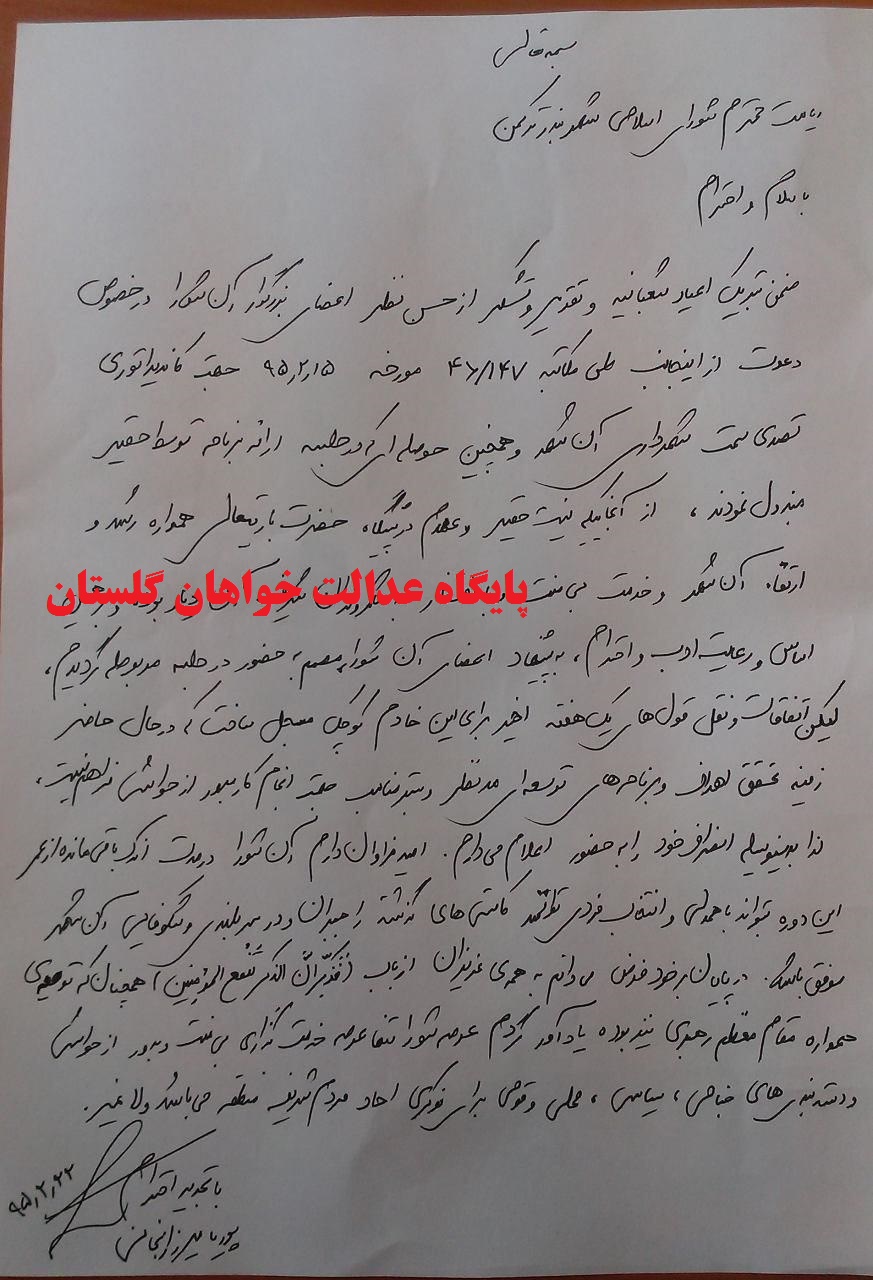 بسمه تعالی
ریاست محترم شورای اسلامی شهر بندرترکمن
با سلام و احترام
ضمن تبریک اعیاد شعبانیه و تقدیر و تشکر از حسن نظر اعضای بزرگوار آن شورا در خصوص
دعوت از اینجانب طی مکاتبه ۴۶/۱۴۷ مورخه ۹۵٫۲٫۱۵ جهت کاندیداتوری
تصدی سمت شهرداری آن شهر و همچنین حوصله ای که در جلسه ارائه برنامه توسط حقیر
مبذول نمودند، از آنجائیکه نیت حقیر و عهدم در پیشگاه حضرت باریتعالی همواره رشد و
ارتقاء آن شهر و خدمت بی منت
پایگاه عدالت خواهان گلستان
اساس و رعایت ادب و احترام، به پیشنهاد اعضای آن شورا، مصمم به حضور در جلسه مربوطه گردیدم،
لیکن اتفاقات و نقل قول های یک هفته اخیر برای این خادم کوچک مسجل ساخت که در حال حاضر
زمینه تحقق اهداف و برنامه های توسعه ای مدنظر و بستر مناسب جهت انجام کار بدور از حواشی فراهم نیست،
لذا بدینوسیله انصراف خود را به حضور اعلام می دارم. امید فراوان دارم آن شورا در مدت اندک باقی مانده از عمر
این دوره بتواند با همدلی و انتخاب فردی توانمند کاستی های گذشته را جبران و در سربلندی و شکوفایی آن شهر
موفق باشد. در پایان بر خود فرض می دانم به همه ی عزیزان از باب (فَذَکِّر اِنَّ الذکری تَنفَعُ المؤمنین) همچنان که توصیه ی
همواره مقام معظم رهبری نیز بوده یادآور گردم عرصه شورا تنها عرصه خدمت گزاری بی منت و بدور از حواشی
و دسته بندی های جناحی، سیاسی، محلی و قومی برای نوکری آحاد مردم شریف منطقه می باشد و لا غیر.
با تجدید احترام
۹۵٫۲٫۲۲
پوریا میرزازنجانی